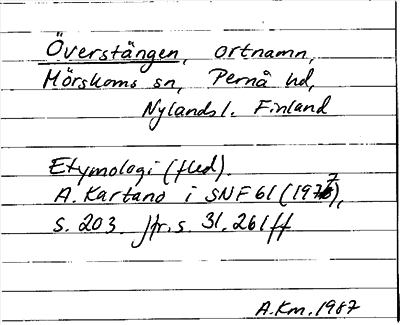 Överstängen, ortnamn,
Mörskoms sn, Pernå hd,
Nylands l. Finland
Etymologi (fled).
A. Kartano i SNF 61 (1977),
s. 203. Jfr. s. 31, 261 ff
A.Km. 1987